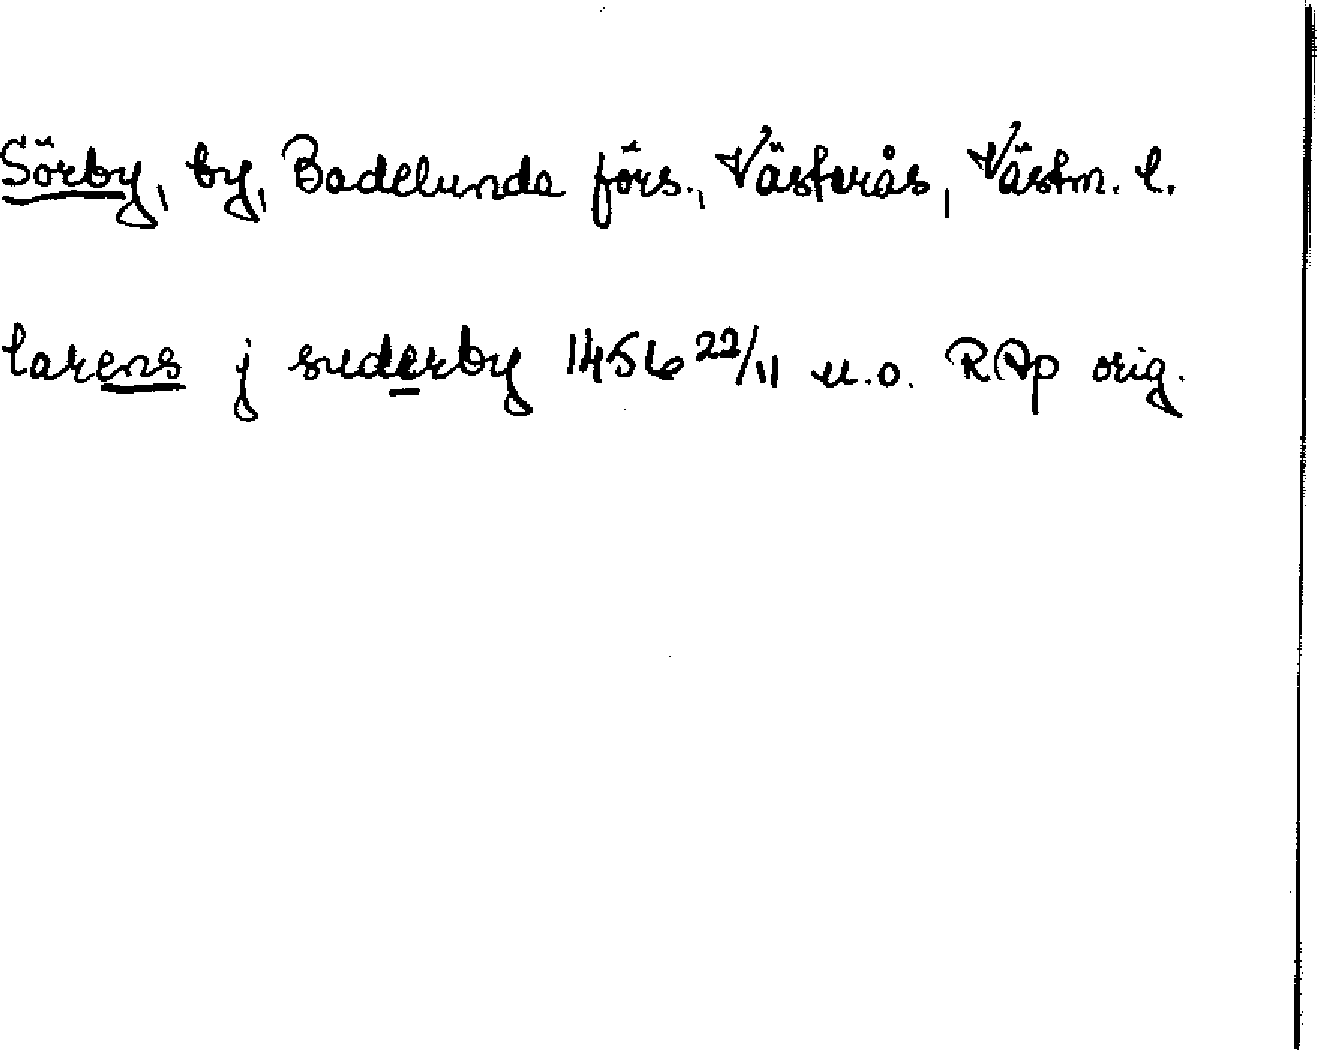 Sörby, by, Badelunda förs., Västerås, Västm. l.
larens j suderby 1456 22/11 u.o. RAp orig.